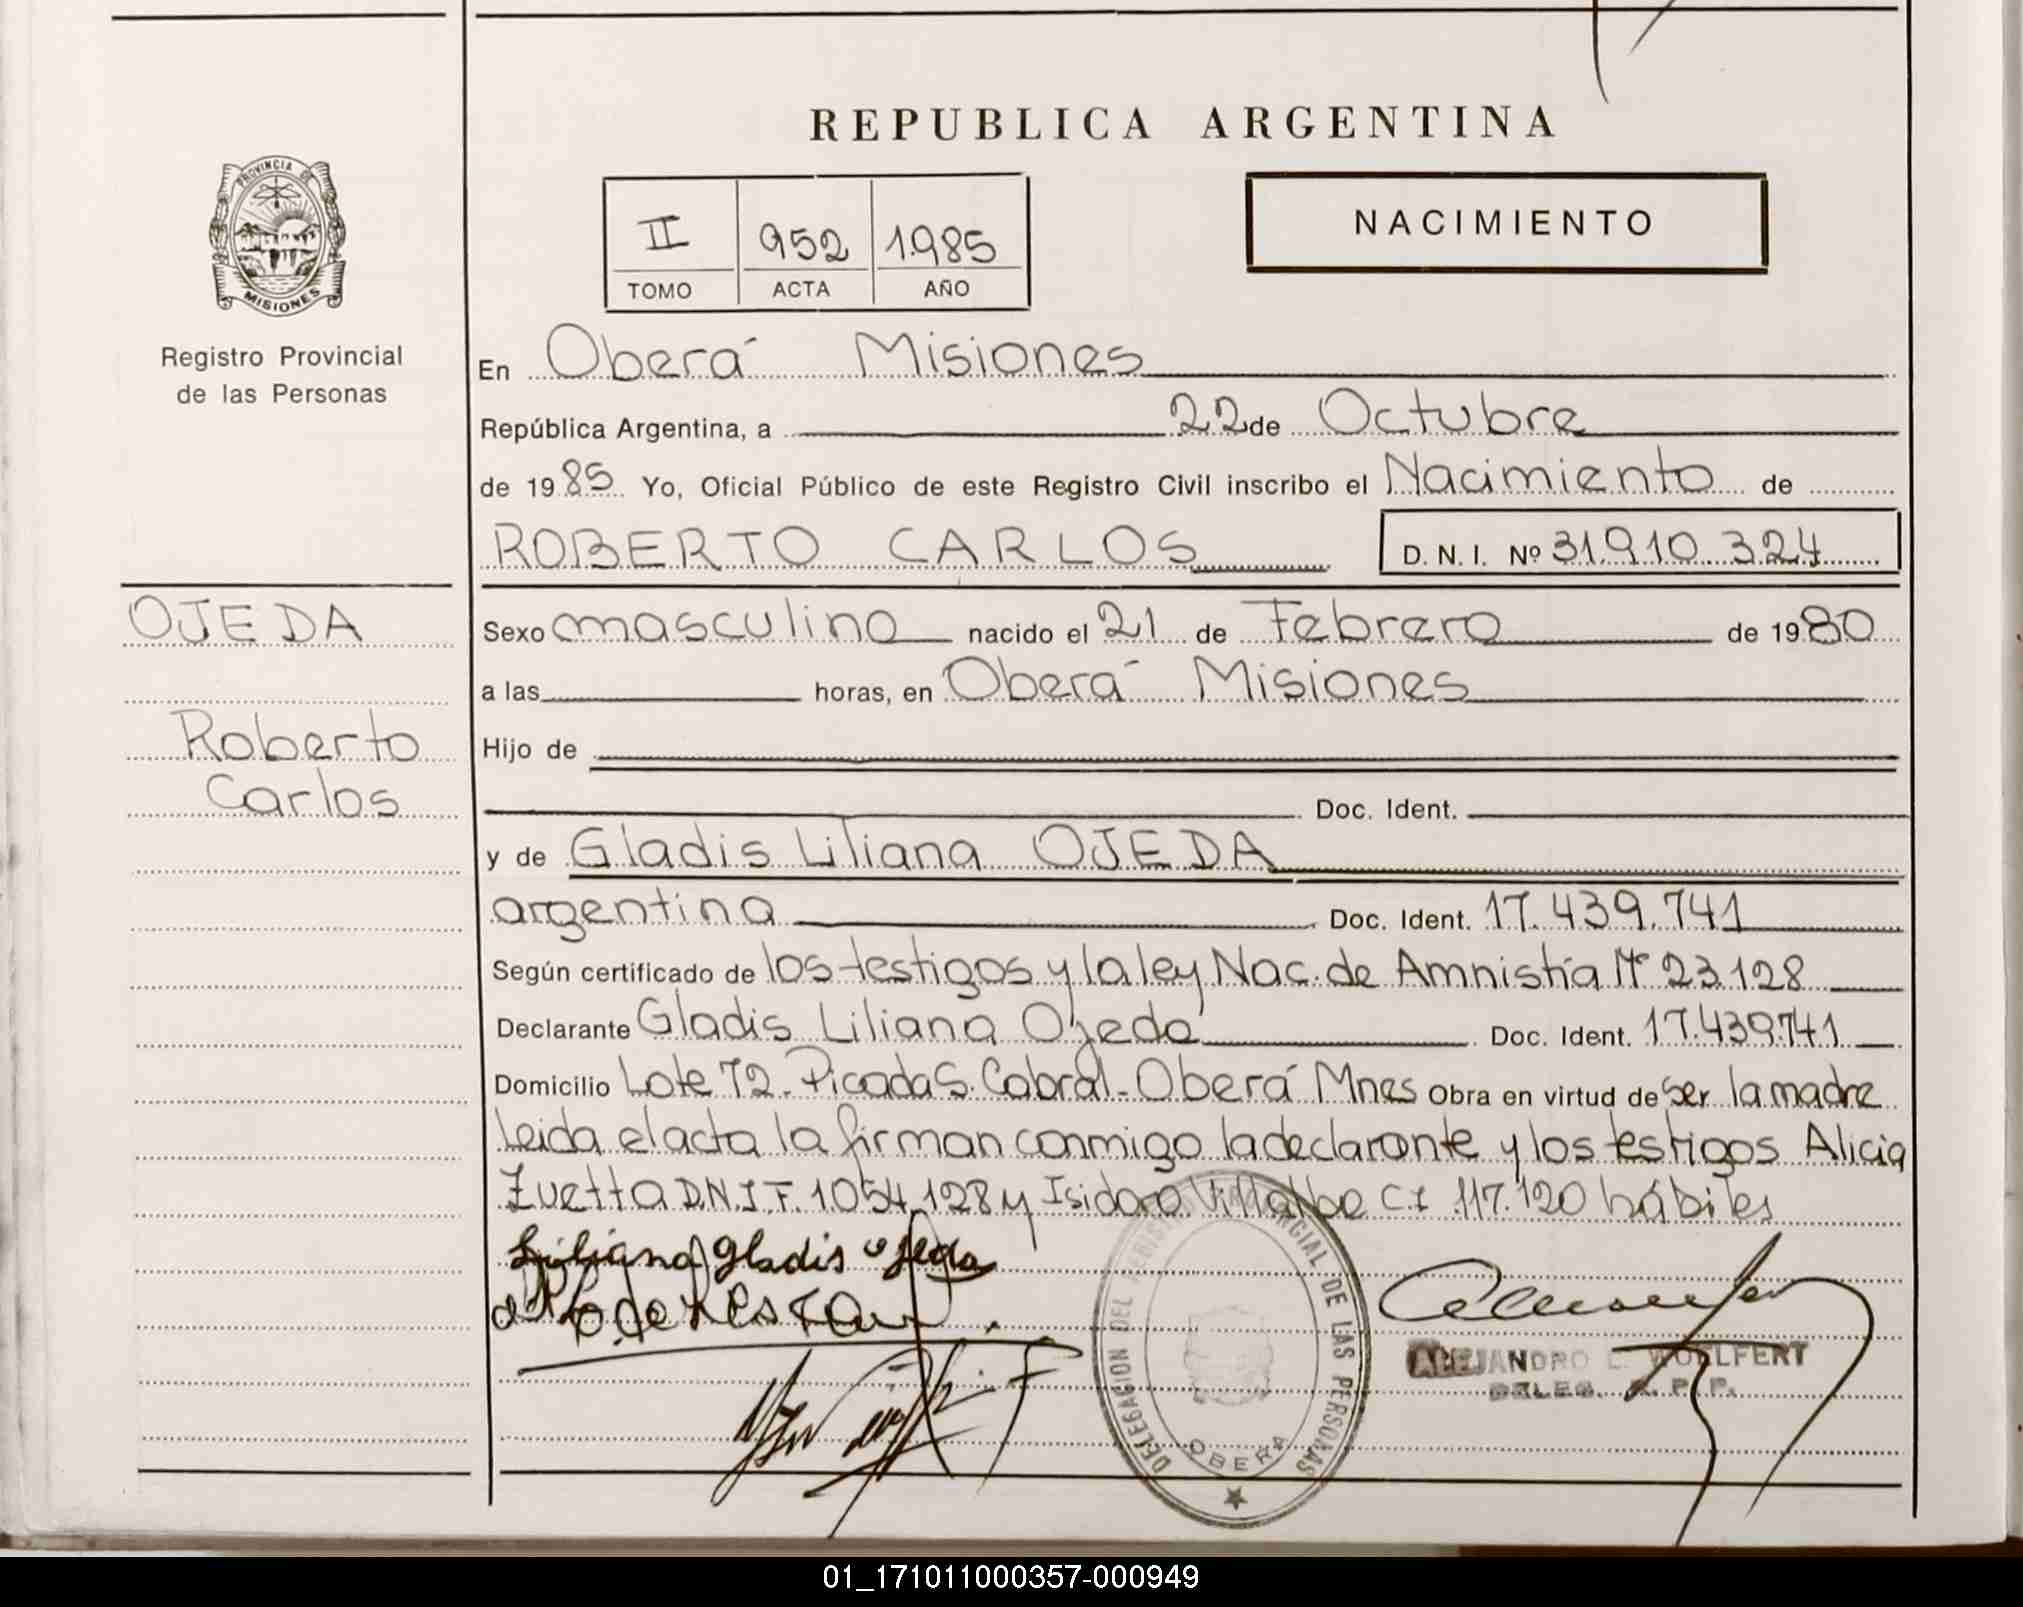 REPUBLICA ARGENTINA
PROVINCIA DE
MISIONES
Registro Provincial
de las Personas
II 952 1.985
TOMO ACTA AÑO
NACIMIENTO
En Oberá Misiones
República Argentina, a 22 de Octubre
de 1985 Yo, Oficial Público de este Registro Civil inscribo el Nacimiento de
ROBERTO CARLOS D. N. I. Nº 31.910.324
OJEDA
Roberto
Carlos
Sexo masculino nacido el 21 de Febrero de 1980
a las horas, en Oberá Misiones
Hijo de
Doc. Ident.
y de Gladis Liliana OJEDA
argentina Doc. Ident. 17.439.741
Según certificado de los testigos y la ley Nac. de Amnistía Nº 23.128
Declarante Gladis Liliana Ojeda Doc. Ident. 17.439.741
Domicilio Lote 72. Picada S. Cabral - Oberá Mnes Obra en virtud de ser la madre
Leida el acta la firman conmigo la declarante y los testigos Alicia
Zuetta D.N.I F. 1.054.128 y Isidoro Villalba C.I 117.120 hábiles
Liliana Gladis ojeda
DELEGACION DEL REGISTRO PROVINCIAL DE LAS PERSONAS
OBERA
ALEJANDRO E. WOLLFERT
DELEG. R. P. P.
01_171011000357-000949